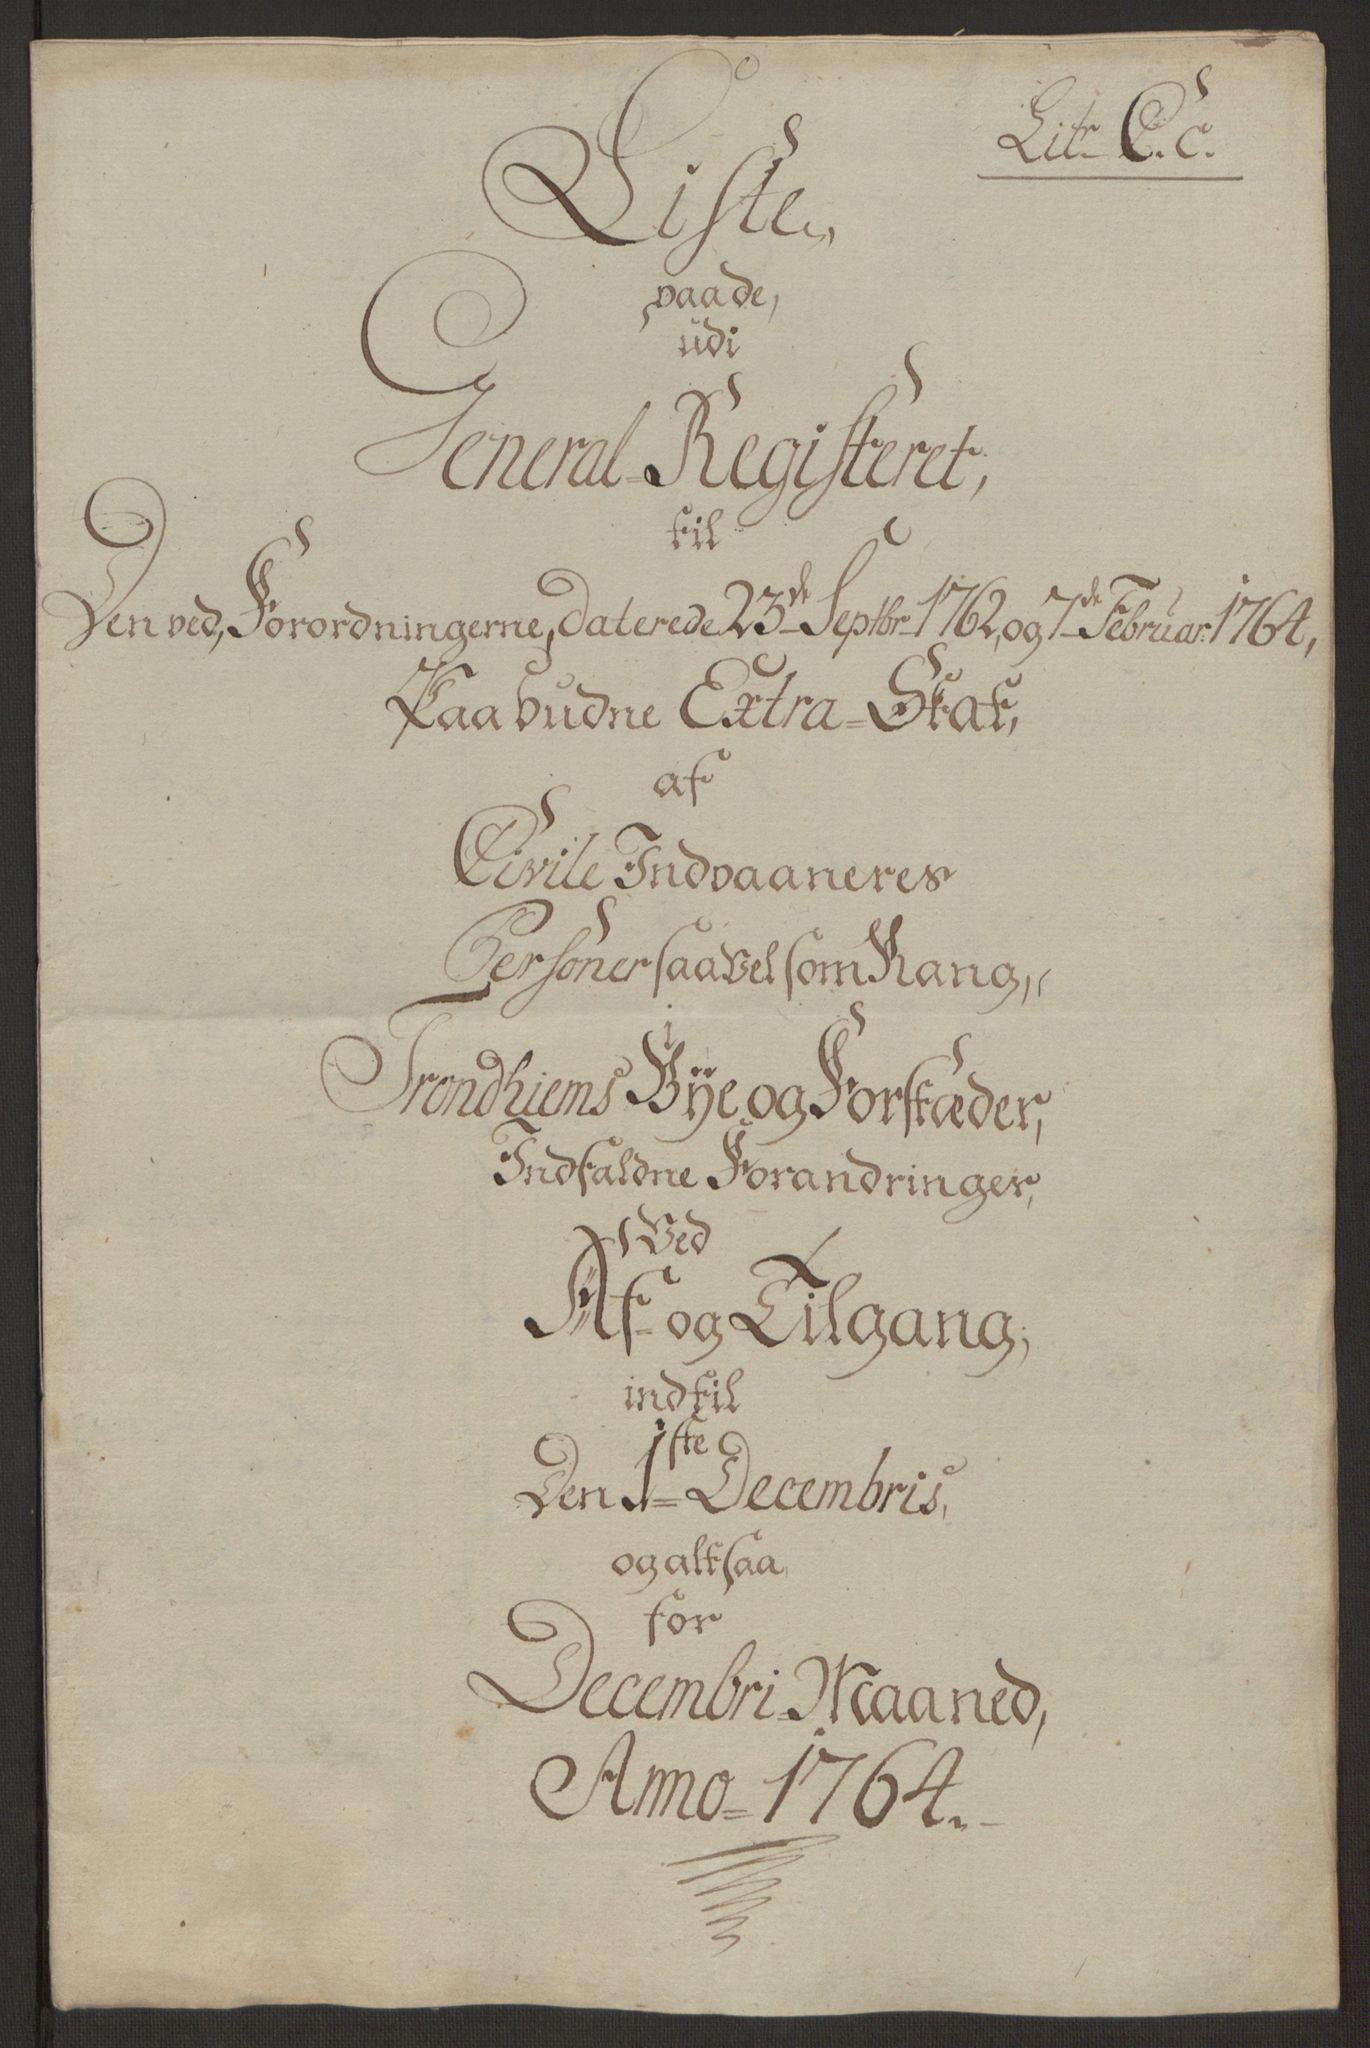 Litr C.c.
Liste,
paa de,
udi
General-Registeret,
til
Den ved, Forordningerne, daterede 23de Septbr 1762, og 7de Februar: 1764,
Paabudne Extra-Skat,
af
Civile Indvaaneres
Personer saavelsom Rang,
i
Trondhiems Bÿe og Forstæder,
Indfaldne Forandringer,
Ved
Af- og Tilgang,
indtil
Den 1ste Decembris,
og altsaa
for
Decembri-Maaned,
Anno-1764.